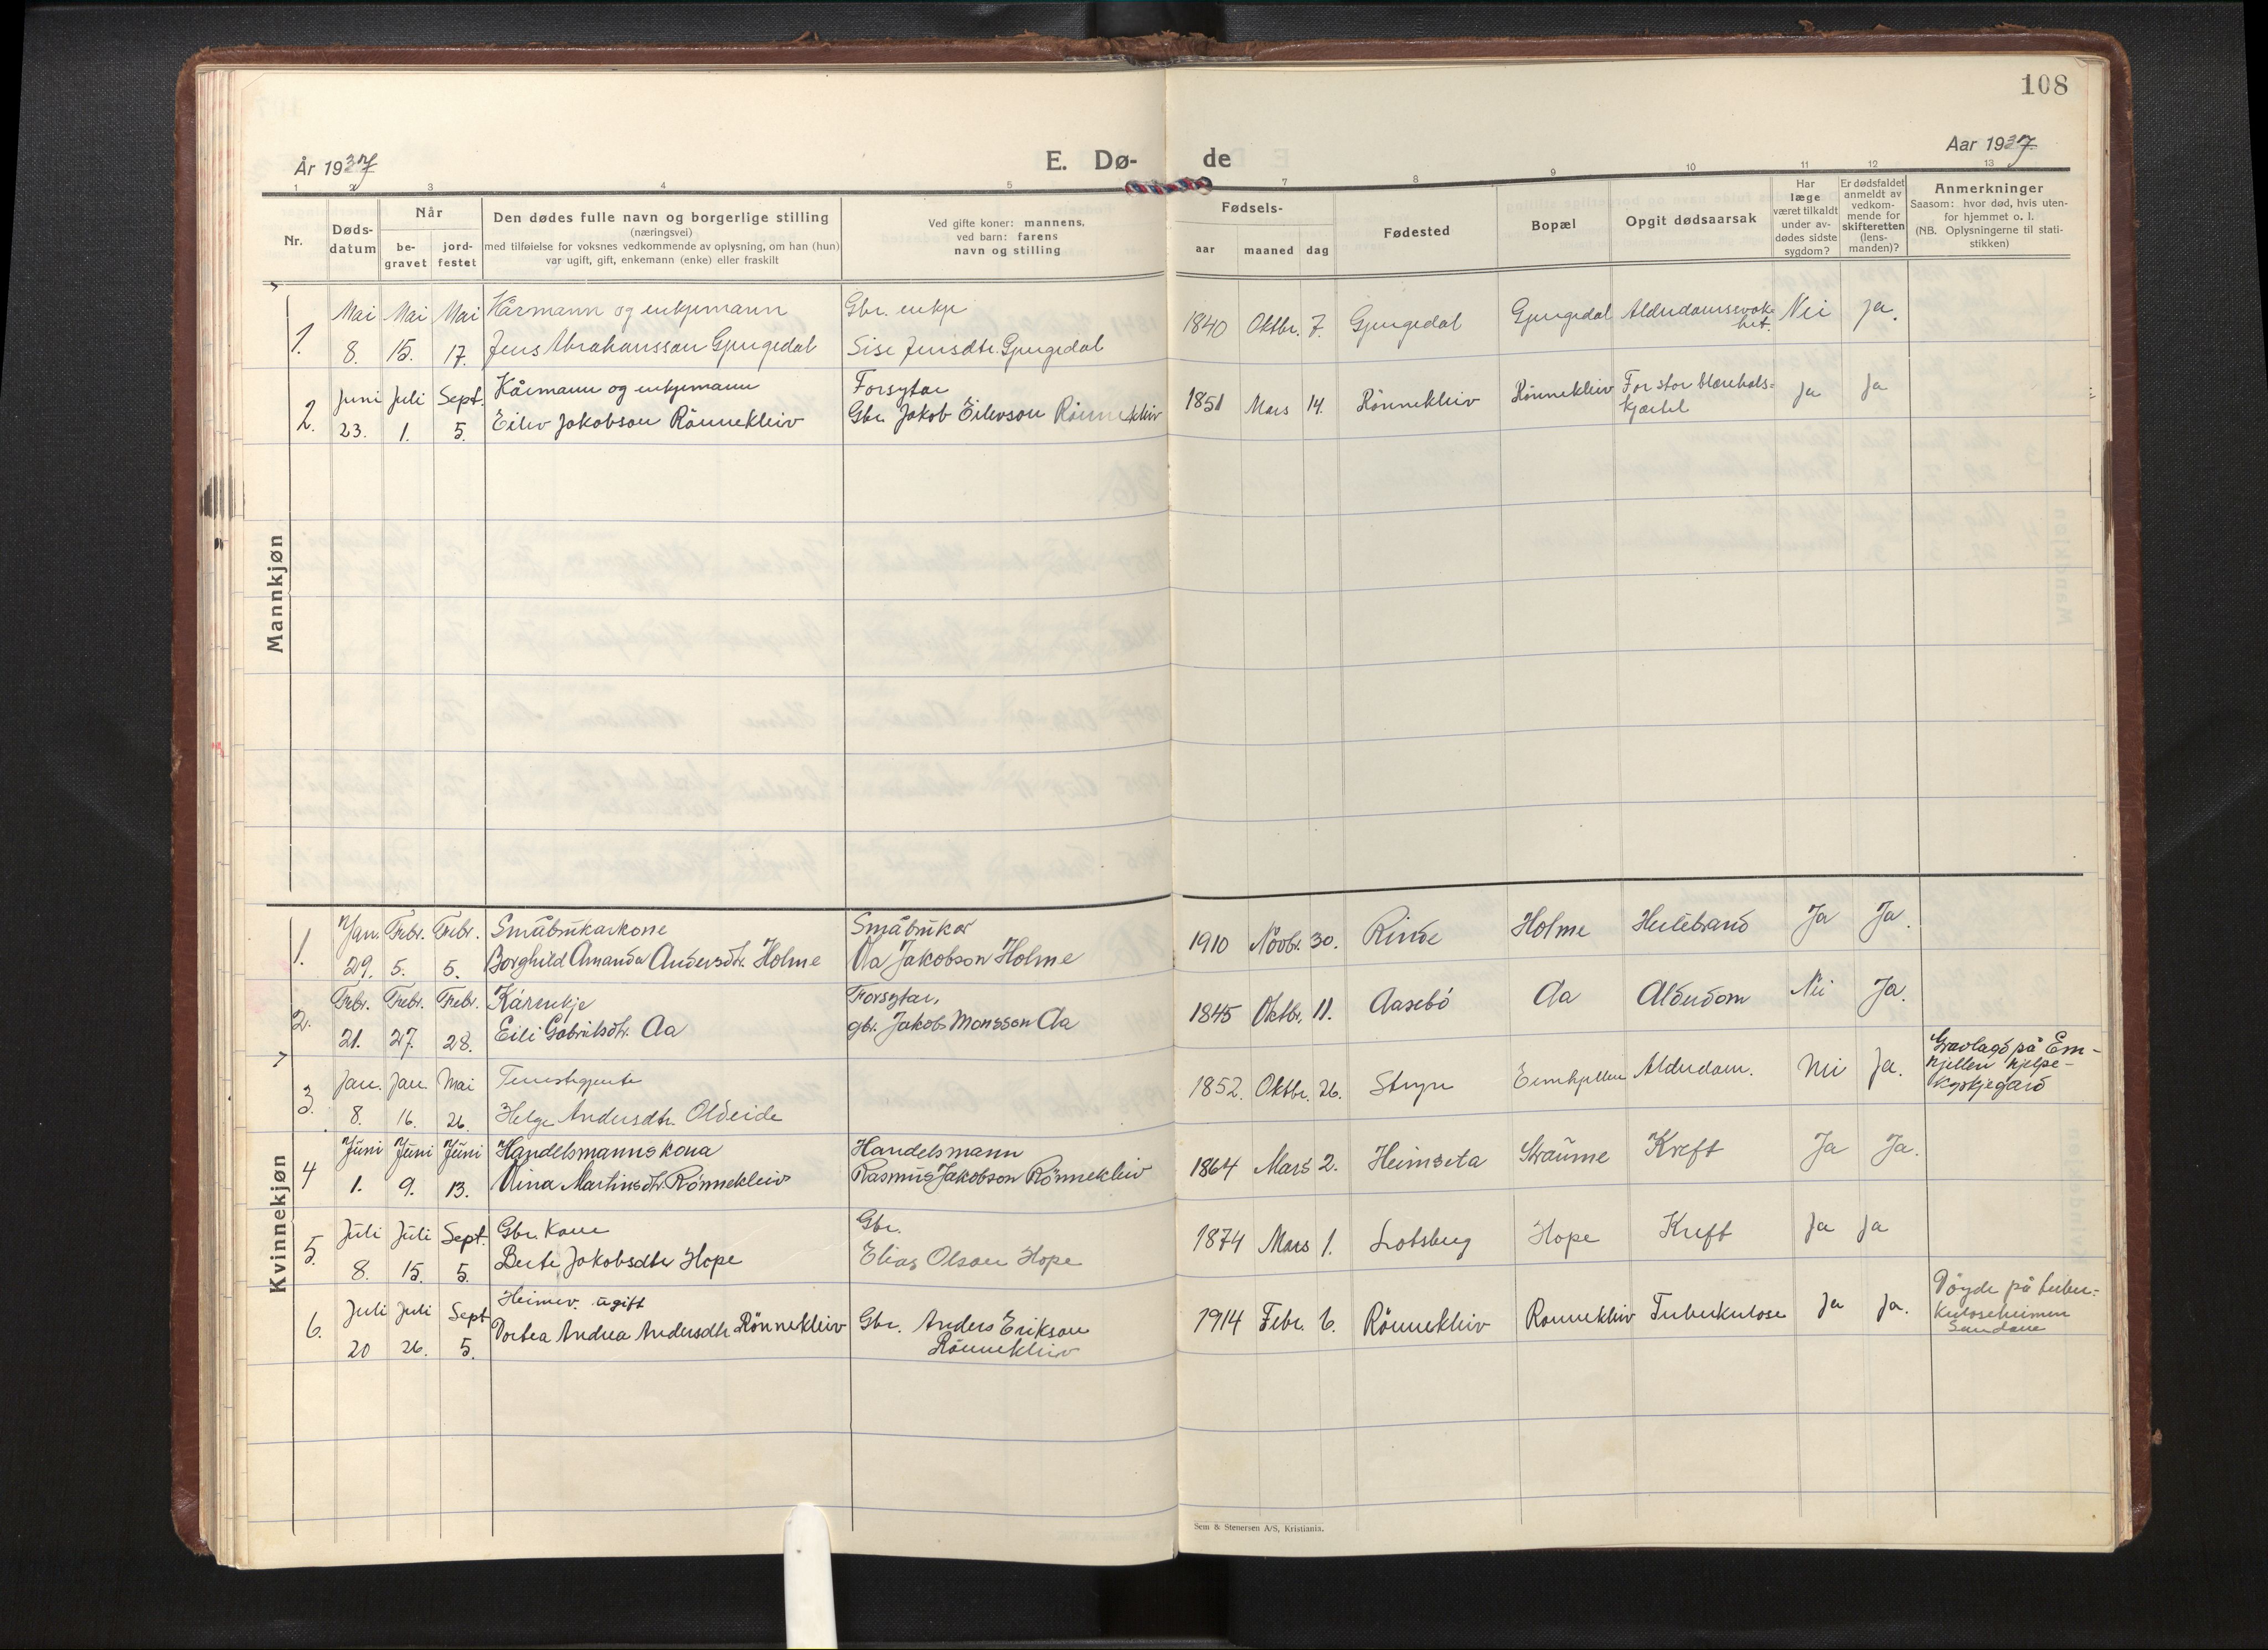 108
År 1937
E. Dø- de
Aar 1937
1 2 3 4 5 7 8 9 10 11 12 13
Nr.
Døds-
datum
Når
be-
gravet
jord-
festet
Den dødes fulle navn og borgerlige stilling
(næringsvei)
med tilføielse for voksnes vedkommende av oplysning, om han (hun)
var ugift, gift, enkemann (enke) eller fraskilt
Ved gifte koner: mannens,
ved barn: farens
navn og stilling
Fødsels-
aar maaned dag
Fødested
Bopæl
Opgit dødsaarsak
Har
læge
været tilkaldt
under av-
dødes sidste
sygdom?
Er dødsfaldet
anmeldt av
vedkom-
mende for
skifteretten
(lens-
manden)?
Anmerkninger
Saasom: hvor død, hvis uten-
for hjemmet o. l.
(NB. Oplysningerne til stati-
stikken)
Mannkjøn
1. Mai 8. Mai 15. Mai 17. Kårmann og enkjemann
Jens Abrahansson Gjengedal
Gbr. enkje
Sise Jensdtr. Gjengedal
1840 Oktbr. 7. Gjengedal Gjengedal Alderdomssvak-
het. Nei Ja.
2. Juni 23. Juli 1. Sept. 5. Kårmann og enkjemann
Eilev Jakobson Rönnekleiv
Forsytar
Gbr. Jakob Eilevson Rönnekleiv
1851 Mars 14. Rönnekleiv Rönnekleiv For stor blærehals=
kjærtel Ja Ja
Kvinnekjøn
1. Jan. 29. Febr. 5. Febr. 5. Småbrukarkone
Borghild Amanda Andersdtr. Holme
Småbrukar
Ola Jakobson Holme
1910 Novbr. 30. Rinde Holme Heilebrand Ja Ja.
2. Febr. 21. Febr. 27. Febr. 28. Kårenkje
Eili Gabrielsdtr. Aa
Forsytar,
gbr. Jakob Monsson Aa
1845 Oktbr. 11. Aasebö Aa Alderdom Nei Ja.
3. Jan. 8. Jan. 16. Mai 26. Tenestegjente
Helge Andersdtr. Oldeide
1852. Oktbr. 26. Stryn Eimhjellen Alderdom. Nei Ja.
Gravlagd på Em-
hjellen hjelpe-
kyrkjegard
4 Juni 1. Juni 9. Juni 13. Handelsmannskona
Olina Martinsdtr. Rönnekleiv
Handelsmann
Rasmus Jakobson Rönnekleiv
1864 Mars 2. Heimseta Straume Kreft Ja Ja.
5. Juli 8. Juli 15. Sept. 5. Gbr. kone
Berte Jakobsdtr Hope
Gbr.
Elias Olsen Hope
1874 Mars 1. Lotsberg Hope Kreft Ja Ja
6. Juli 20 Juli 26. Sept 5. Heimev. ugift
Dortea Andrea Andersdtr Rönnekleiv
Gbr. Anders Erikson
Rönnekleiv
1914 Febr. 6. Rönnekleiv Rönnekleiv Tuberkulose Ja Ja.
Döyde på tuber=
kuloseheimen
Sandane
Sem & Stenersen A/S, Kristiania.